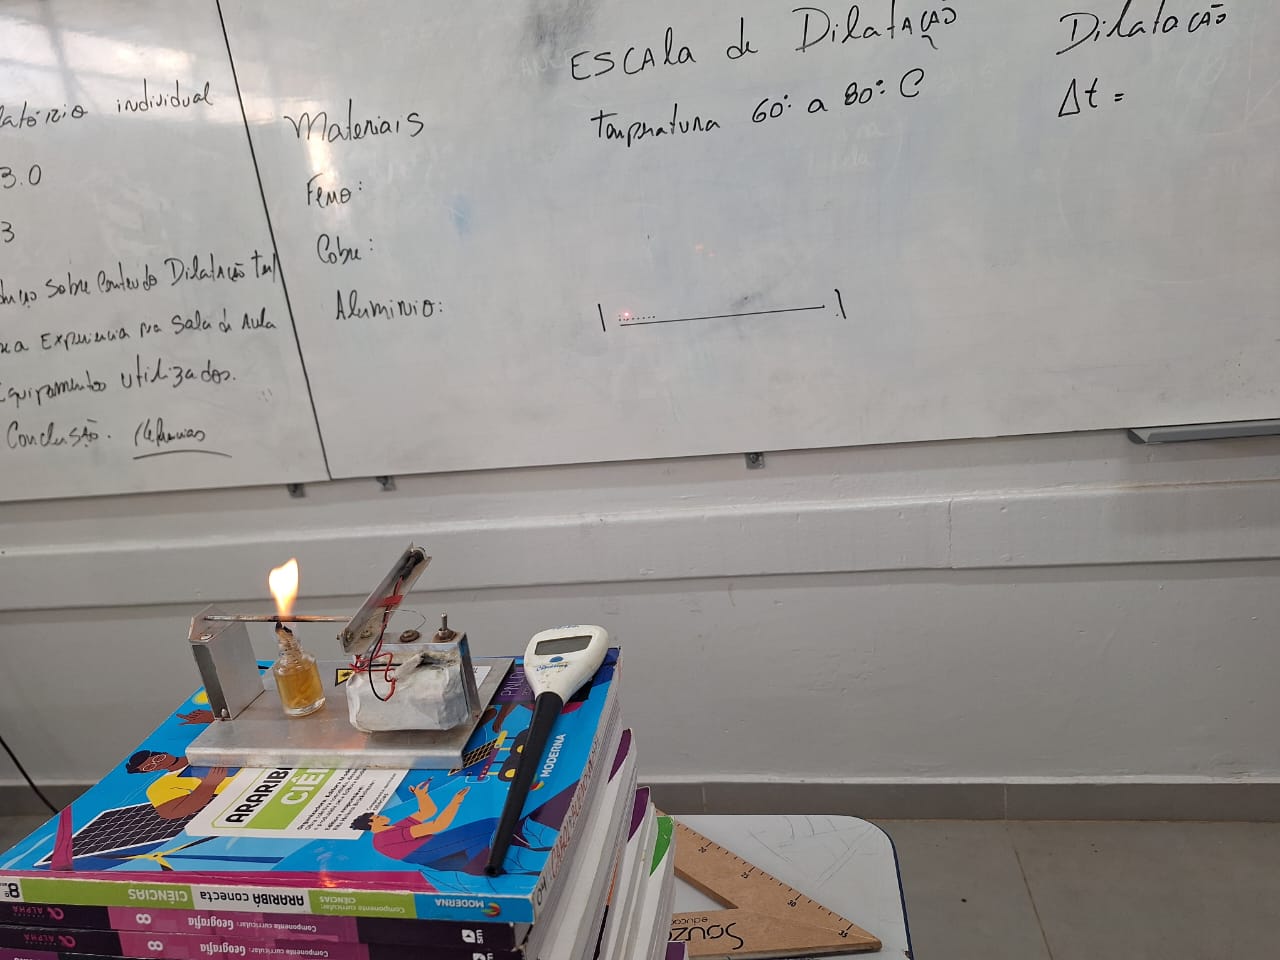 individual
3.0
3
sobre Conteudo Dilatação
Experiencia na Sala de Aula
Equipamentos utilizados.
Conclusão.
Materiais
Ferro:
Cobre:
Aluminio:
ESCAla de DilatAção
temperatura 60° a 80° C
Dilatação
Δt =
ARARIBÁ
CIÊN
MODERNA
8º
CIÊNCIAS
ARARIBÁ conecta
Componente curricular: CIÊNCIAS
MODERNA
ALPHA
8
Componente curricular: Geografia
sm
ALPHA
8
Componente curricular: Geografia
Souza
25
30
35